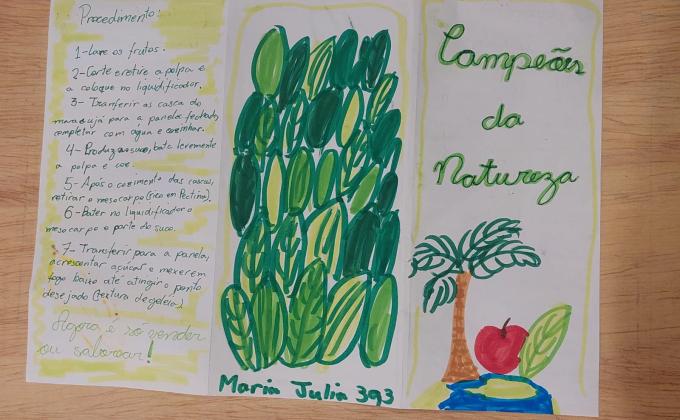 Procedimento:
1- Lave os frutos.
2- Corte e retire a polpa e
a coloque no liquidificador.
3- Tranferir as casca do
maracujá para a panela fechada,
completar com água e cozinhar.
4- Produza o suco, bata levemente
a polpa e coe.
5- Após o cozimento das cascas,
retirar o mesocarpo (rico em Pectina).
6- Bater no liquidificador o
mesocarpo e parte do suco.
7- Transferir para a panela,
acrescentar açúcar e mexer em
fogo baixo até atingir o ponto
desejado (textura de geleia)
Agora é só vender
ou saborear!
Maria Julia 393
Campeões
da
Natureza